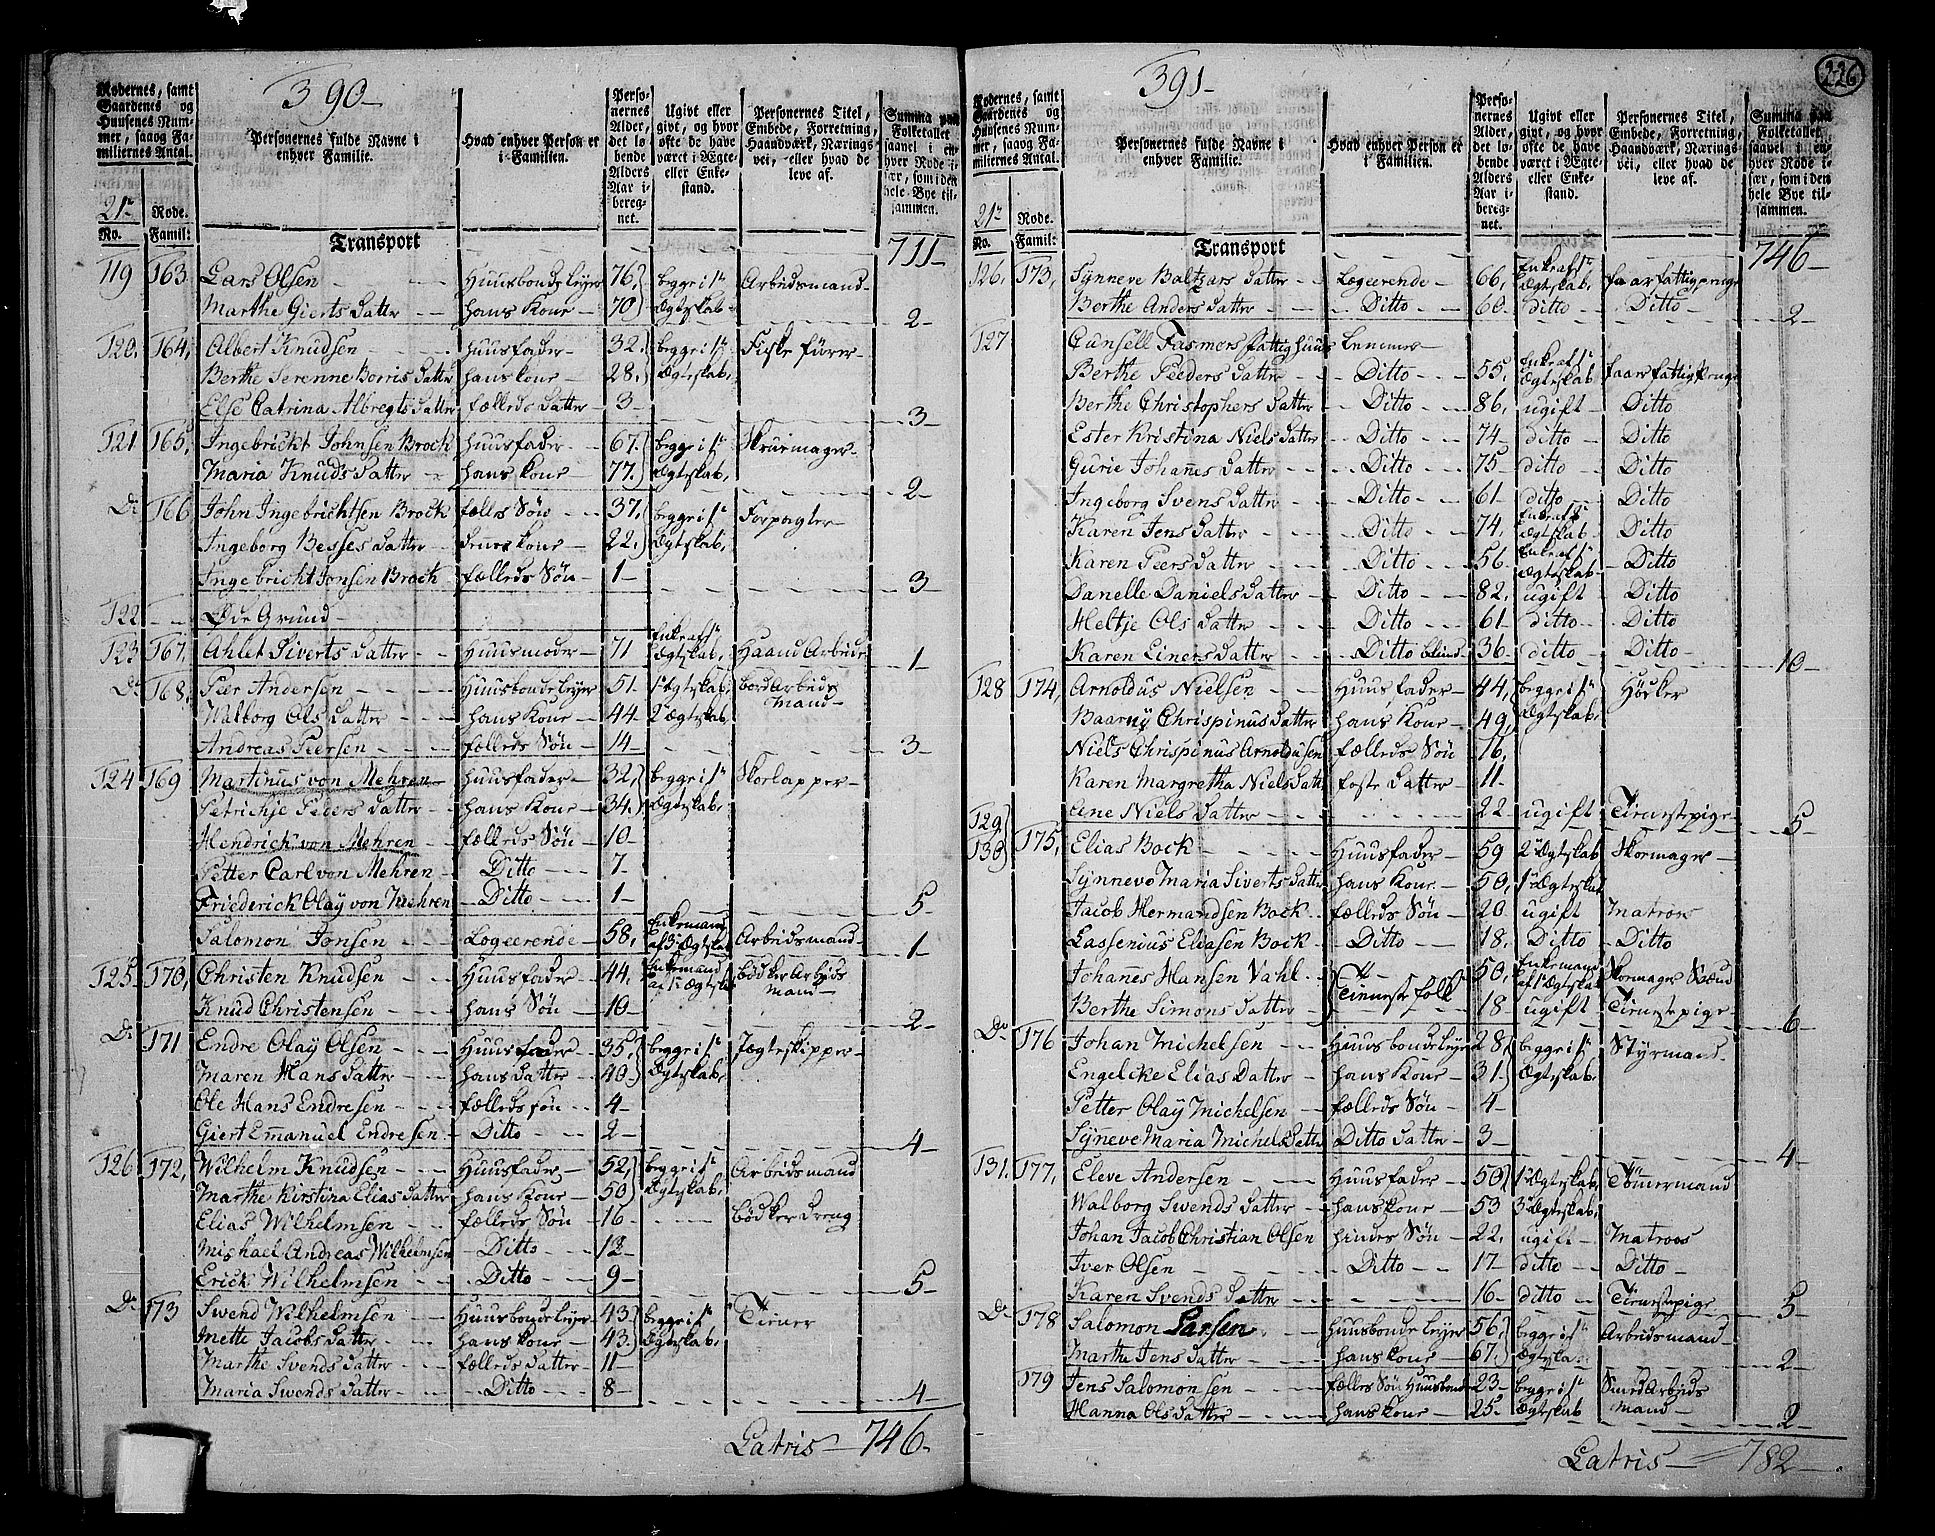 390-
Rodernes, samt Gaardenes og Huusenes Nummer, saavog Familiernes Antal.
Personernes fulde Navne i enhver Familie.
Hvad enhver Person er i Familien.
Personernes Alder, det løbende Alders Aar iberegnet.
Ugivt eller givt, og hvor ofte de have været i Ægte- eller Enkestand.
Personernes Titel, Embede, Forretning, Haandværk, Næringsvei, eller hvad de leve af.
Summa paa Folketallet saavel i enhver Rode især, som i den hele Bye tilsammen.
21de Rode.
No. Famil:
Transport 711-
119 163 Lars Olsen - Huusbonde Leyer 76, begge i 1te Ægteskab Arbeidsmand
Marthe Gierts Datter - hans Kone - 70 2-
120, 164, Albert Knudsen - huusfader - 32, begge i 1te Ægteskab, Fiske fører
Berthe Serenne Borris Datter hans kone - 28,
Else Catrina Albregts Datter fælleds Datter - 3 - 3
121 165, Ingebrickt Johnsen Brock huusfader - 67, begge i 1te Ægteskab, Skruemager
Maria Knuds Datter - hans kone - 77, 2-
Do 166 John Ingebrichtsen Brock fælles Søn - 37, begge i 1te Ægteskab, Forpagter
Ingeborg Besses Datter - denes kone - 22,
Ingebricht Jonsen Brock - fælleds Søn - 1 - 3
122 - Øde Grund
123 167, Ahlet Siverts Datter - Huusmoder - 71 Enke af 1te Ægteskab, Haand Arbeide 1
Do 168, Peer Andersen - Huusbonde Leyer 51 1te Ægteskab, bord Arbeids Mand
Walborg Ols Datter - hans Kone - 44 2de Ægteskab,
Andreas Peersen - fælleds Søn - 14 - 3
124 169 Martinus von Mehren - huusfader - 32, begge i 1te Ægteskab, Skoelapper
Petrickje Peders Datter - hans Kone - 34,
Hendrich von Mehren - fælleds Søn - 10
Petter Carl von Mehren - Ditto - 7
Friederick Olaÿ von Mehren - Ditto - 1 - 5
Salomon Jonsen - Logeerende - 58, Enkemand af 3de Ægteskab Arbeidsmand - 1
125 170, Christen Knudsen - Huusfader - 44, Enkemand af 1te Ægteskab bødker Arbeids Mand
Knud Christensen - hans Søn - 10 2
Do 171 Endre Olaÿ Olsen - Huusfader - 35, begge i 1te Ægteskab, Jægteskipper
Maren Hans Datter - hans Datter - 40
Ole Hans Endresen - fælleds søn - 4
Giert Emanuel Endresen - Ditto - 2 - 4
126 172, Wilhelm Knudsen - Huusfader - 52, begge i 1te Ægteskab, Arbeidsmand
Marthe Kirstina Elias Datter hans Kone - 50
Elias Wilhelmsen - fælleds Søn - 16 - bødker dreng
Mishael Andreas Wilhelmsen - Ditto - 12
Erick Wilhelmsen - Ditto - 9 - 5
Do 173 Swend Wilhelmsen - Huusbonde Leyer - 43 begge i 1te Ægteskab, Tiener
Mette Jacobs Datter - hans Kone - 43
Marthe Svends Datter - fælleds Datter - 11
Maria Swends Datter - Ditto - 8 - 4
Latris - 746-
391-
226
Rodernes, samt Gaardenes og Huusenes Nummer, saavog Familiernes Antal.
Personernes fulde Navne i enhver Familie.
Hvad enhver Person er i Familien.
Personernes Alder, det løbende Alders Aar iberegnet.
Ugivt eller givt, og hvor ofte de have været i Ægte- eller Enkestand.
Personernes Titel, Embede, Forretning, Haandværk, Næringsvei, eller hvad de leve af.
Summa paa Folketallet saavel i enhver Rode især, som i den hele Bye tilsammen.
21de Rode.
No. Famil:
Transport 746-
126, 173, Synneve Baltzars Datter - Logeerende - 66, Enke af 1te Ægteskab, faar fattigpenge
Berthe Anders Datter - Ditto - 60 ditto - Ditto - 2
127 Cunsell Fasmers fattighuus Lemmer
Berthe Peeders Datter - Ditto - 55, Enke af 1te Ægteskab faar fattigpenge
Berthe Christophers Datter - Ditto - 86, ugift - Ditto
Ester Kristina Niels Datter - Ditto - 74 ditto - Ditto
Gurie Johanes Datter - Ditto - 75 ditto - Ditto
Ingeborg Svens Datter - Ditto - 61 ditto - Ditto
Karen Jens Datter - Ditto - 74, Enke af 1te Ægteskab - Ditto
Karen Peers Datter - Ditto - 56 Enke af 1te Ægteskab - Ditto
Danelle Daniels Datter - Ditto - 82, ugift - Ditto
Heltje Ols Datter - Ditto - 61 ditto - Ditto
Karen Einers Datter - Ditto blind - 36 ditto - Ditto 10
128 174, Arnoldus Nielsen - Huusfader - 44, begge i 1te Ægteskab, Høcker
Baarnÿ Chrispinus Datter hans Kone - 49,
Niels Chrispinus Arnoldusen fælleds Søn 16,
Karen Margretha Niels Datt foste Datter - 11
Ane Niels Datter - 22 ugift Tienestpige 5
129 130 175, Elias Bock - Huusfader - 59 2de Ægteskab Skomager
Synneve Maria Siverts Datt hans Kone - 50, 1te Ægteskab
Jacob Hermandsen Bock - fælleds Søn 20 ugift Matros
Lassenius Eliasen Bock - Ditto - 18, Ditto - Ditto
Johanes Hansen Vahl - Tieneste folk 50, Enkemand af 1te Ægteskab Skomager Svend
Berthe Simons Datter - 18 ugift Tienestpige 6
Do 176 Johan Michelsen - Huusbonde Leyer 28, begge i 1te Ægteskab, Styrmand
Engelcke Elias Datter - hans Kone - 31
Petter Olaÿ Michelsen - fælleds Søn - 4
Synneve Maria Michels Datter Ditto Datter - 3 - 4
131, 177, Eleve Andersen - Huusfader - 50 1te Ægteskab, Tømermand
Walborg Swends Datter - hans kone - 53 3de Ægteskab,
Johan Jacob Christian Olsen hindes Søn - 22, ugift - Matros
Iver Olsen - Ditto - 17 ditto - Ditto
Karen Svends Datter - 16 ditto Tienestpige 5
Do 178 Salomon Larsen - huusbonde Leyer 56, begge i 1te Ægteskab Arbeidsmand
Marthe Jens Datter - hans kone - 67, 2
179 Jens Salomonsen - fælles Søn Huusbond 23 begge i 1te Ægteskab Smed Arbeids Mand
Hanna Ols Datter - hans kone - 25 2
Latris - 782-